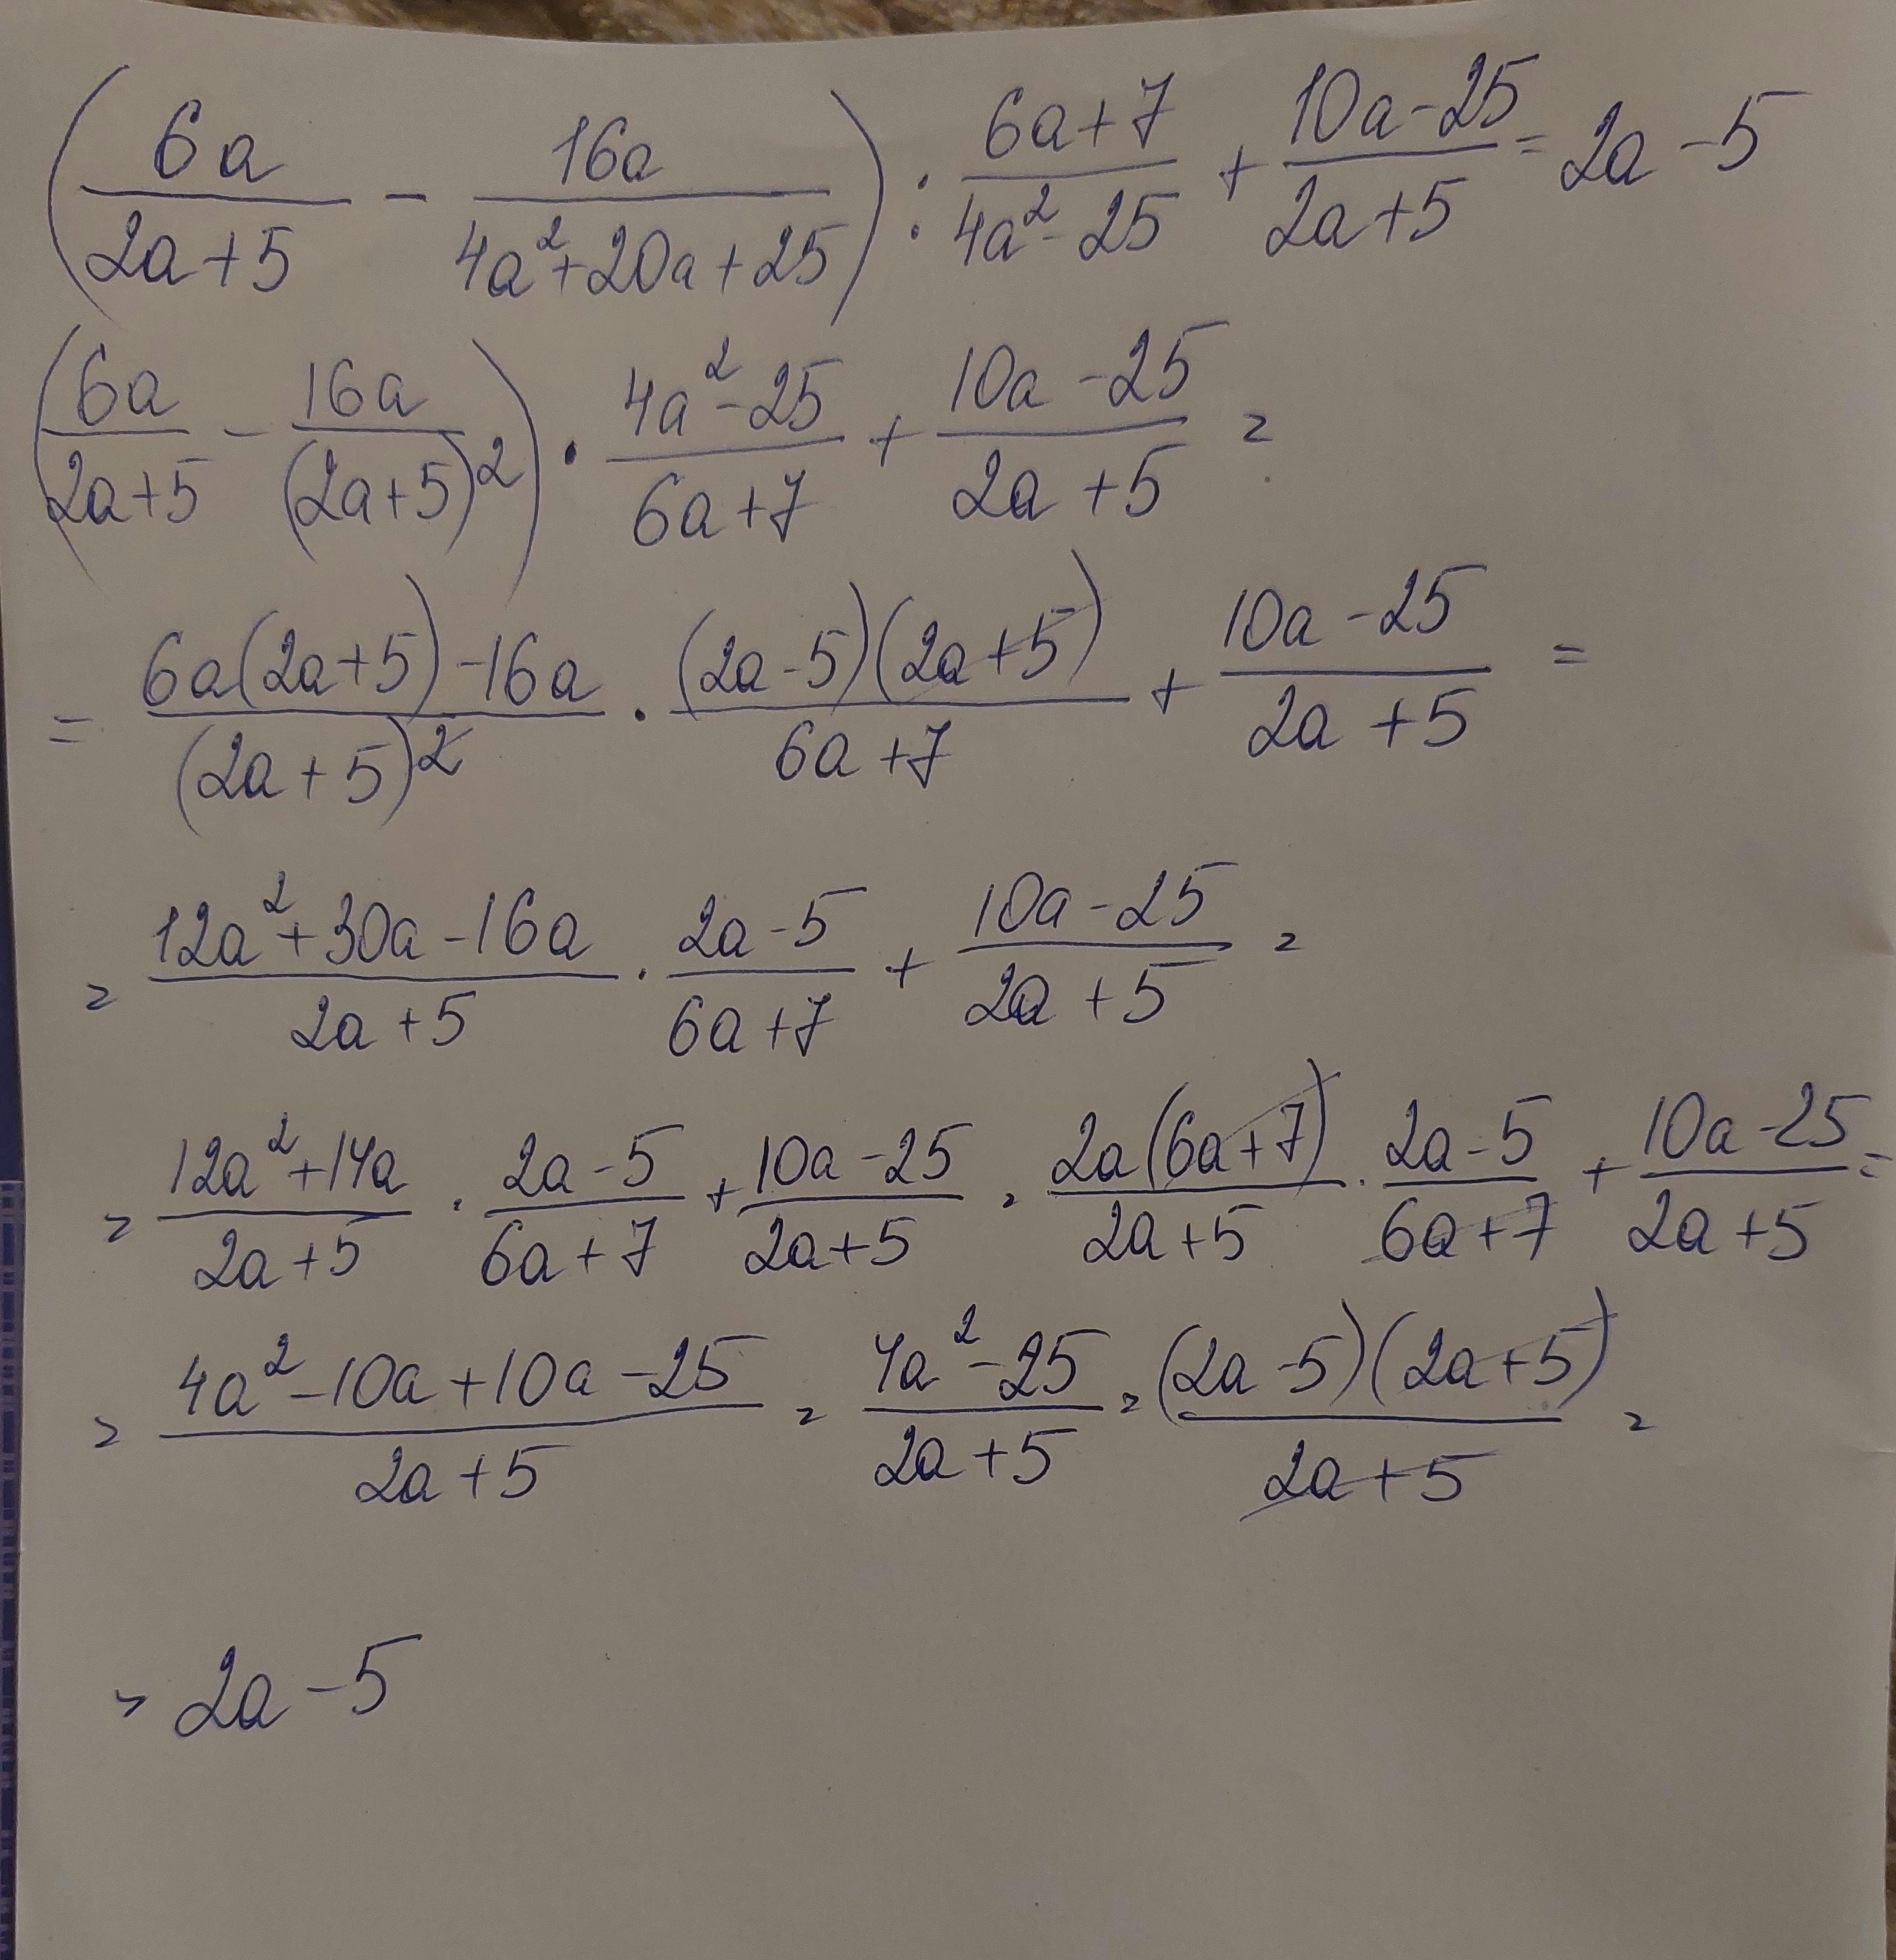 (6a/(2a+5) - 16a/(4a²+20a+25)) : (6a+7)/(4a²-25) + (10a-25)/(2a+5) = 2a-5
(6a/(2a+5) - 16a/(2a+5)²) · (4a²-25)/(6a+7) + (10a-25)/(2a+5) =
= (6a(2a+5)-16a)/(2a+5)² · ((2a-5)(2a+5))/(6a+7) + (10a-25)/(2a+5) =
= (12a²+30a-16a)/(2a+5) · (2a-5)/(6a+7) + (10a-25)/(2a+5) =
= (12a²+14a)/(2a+5) · (2a-5)/(6a+7) + (10a-25)/(2a+5) = (2a(6a+7))/(2a+5) · (2a-5)/(6a+7) + (10a-25)/(2a+5) =
= (4a²-10a+10a-25)/(2a+5) = (4a²-25)/(2a+5) = ((2a-5)(2a+5))/(2a+5) =
= 2a-5